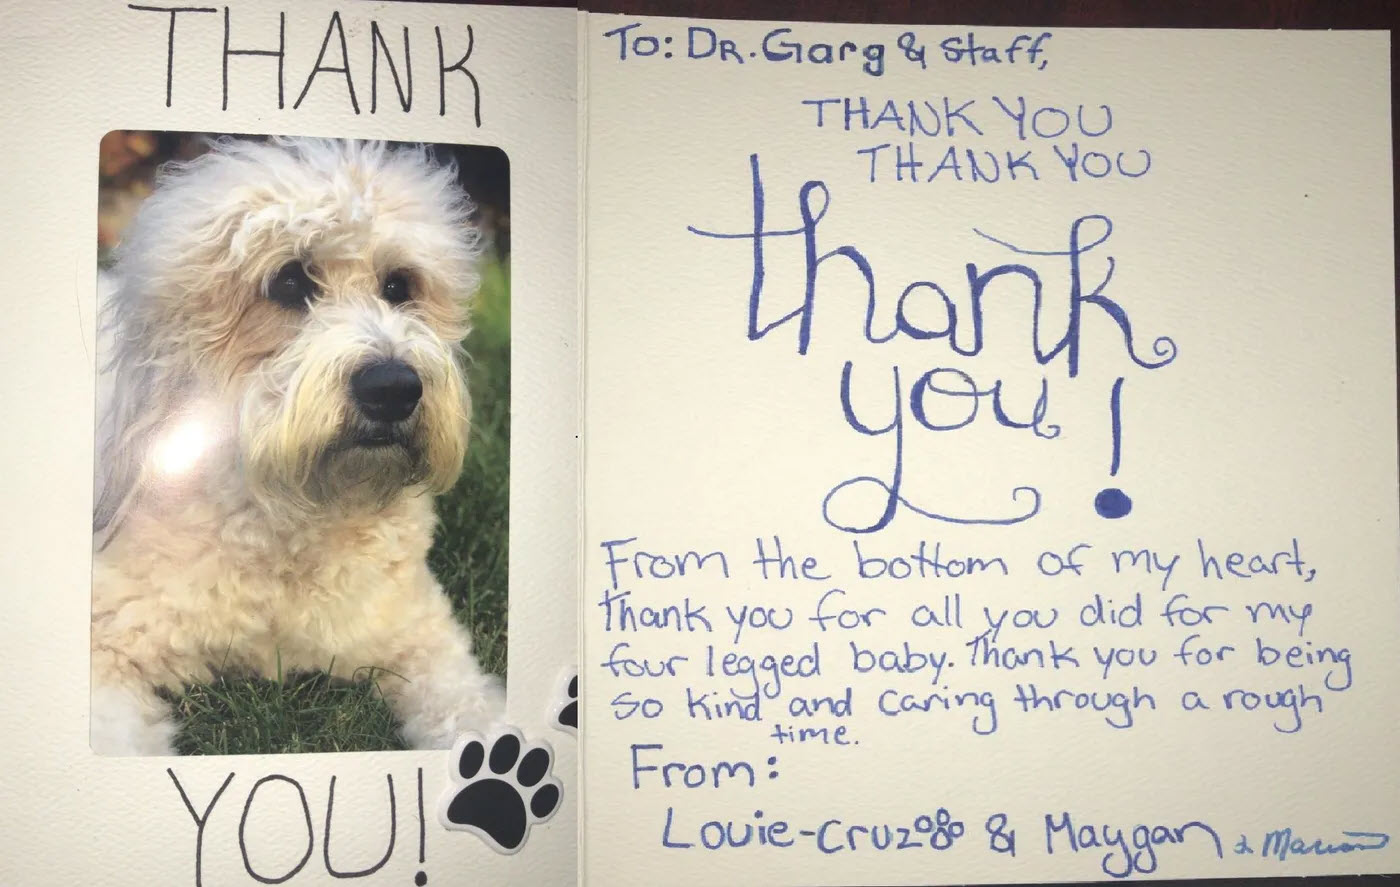 THANK
YOU!
To: DR. Garg & Staff,
THANK YOU
THANK YOU
thank
you!
From the bottom of my heart,
Thank you for all you did for my
four legged baby. Thank you for being
so kind and caring through a rough
time.
From:
Louie-Cruz & Maygan &